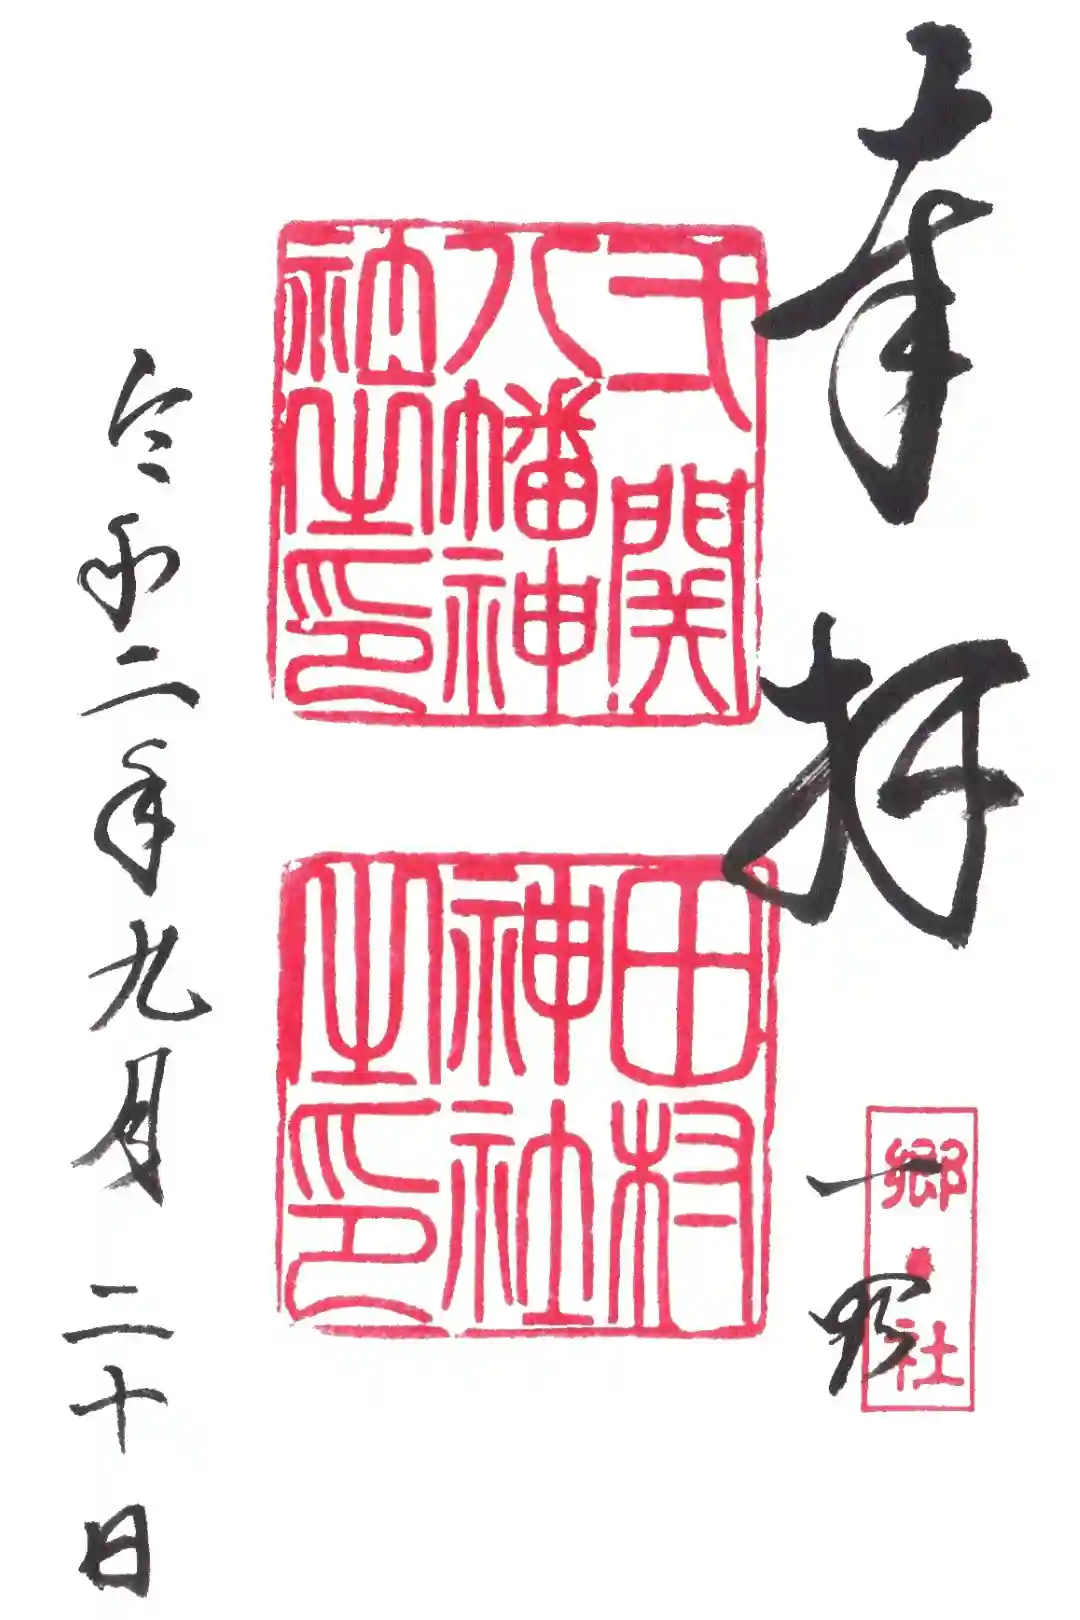 奉拝
一関
郷社
弌関
八幡神
社之印
田村
神社
之印
令和二年九月二十日